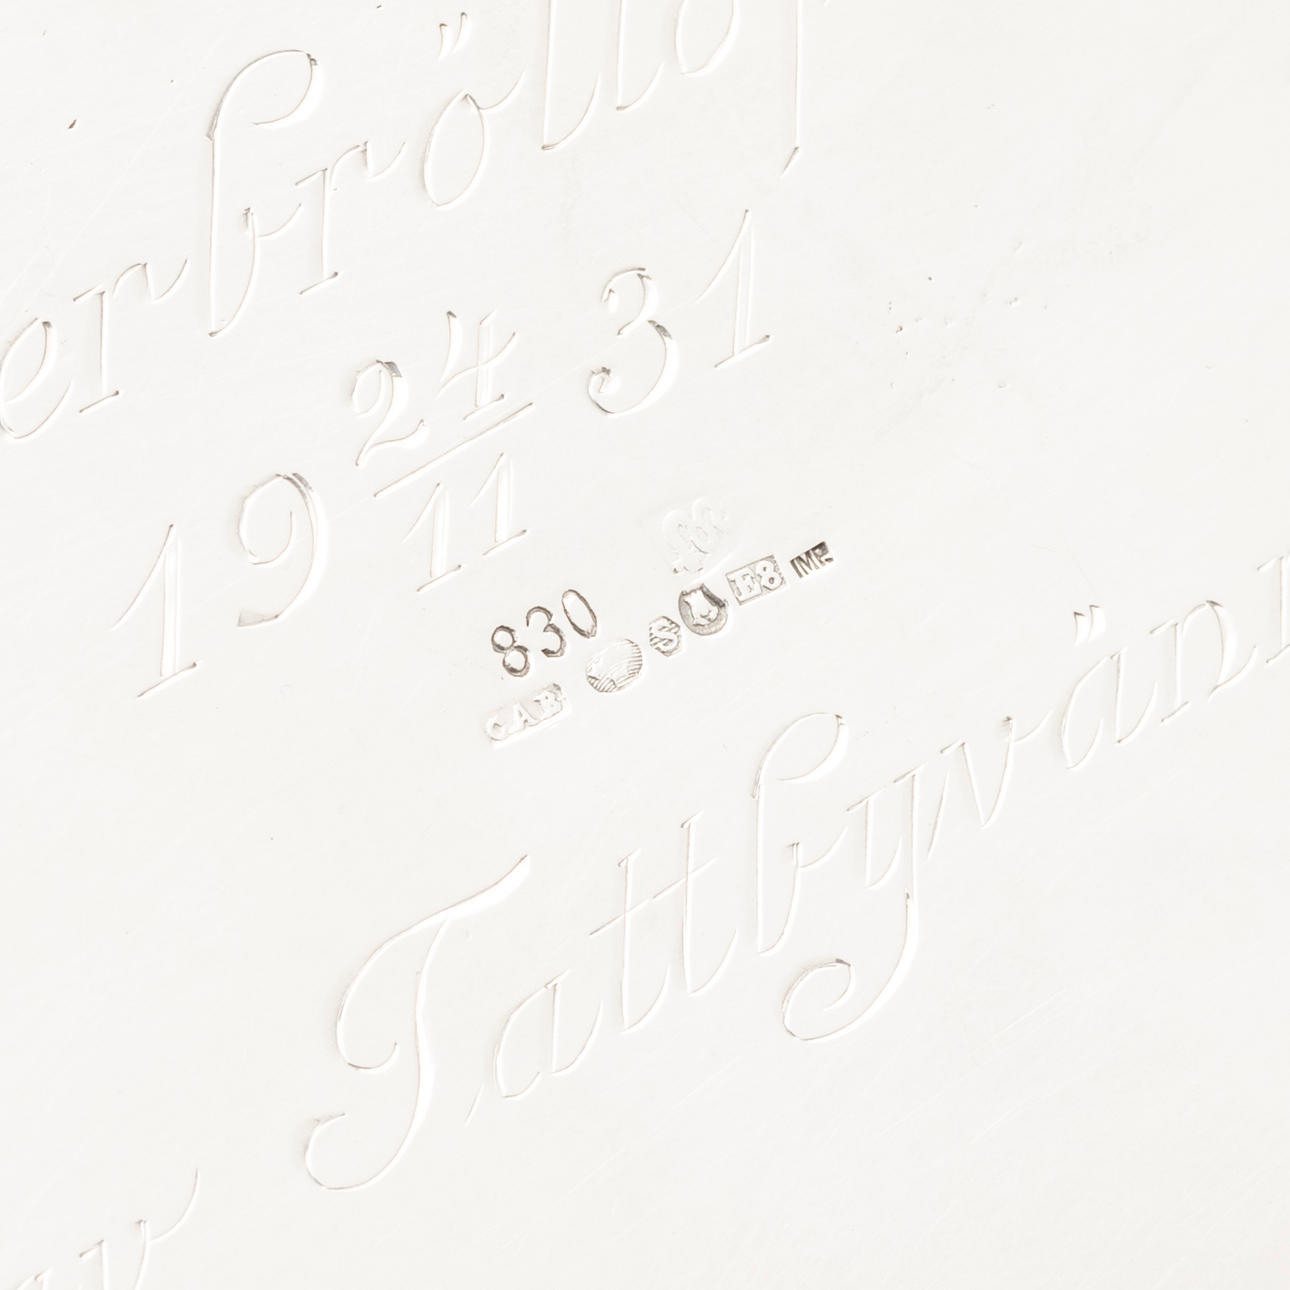 erbröllop
19 24/11 31
830
CAB S E8 MP
Tattbyvänn
av